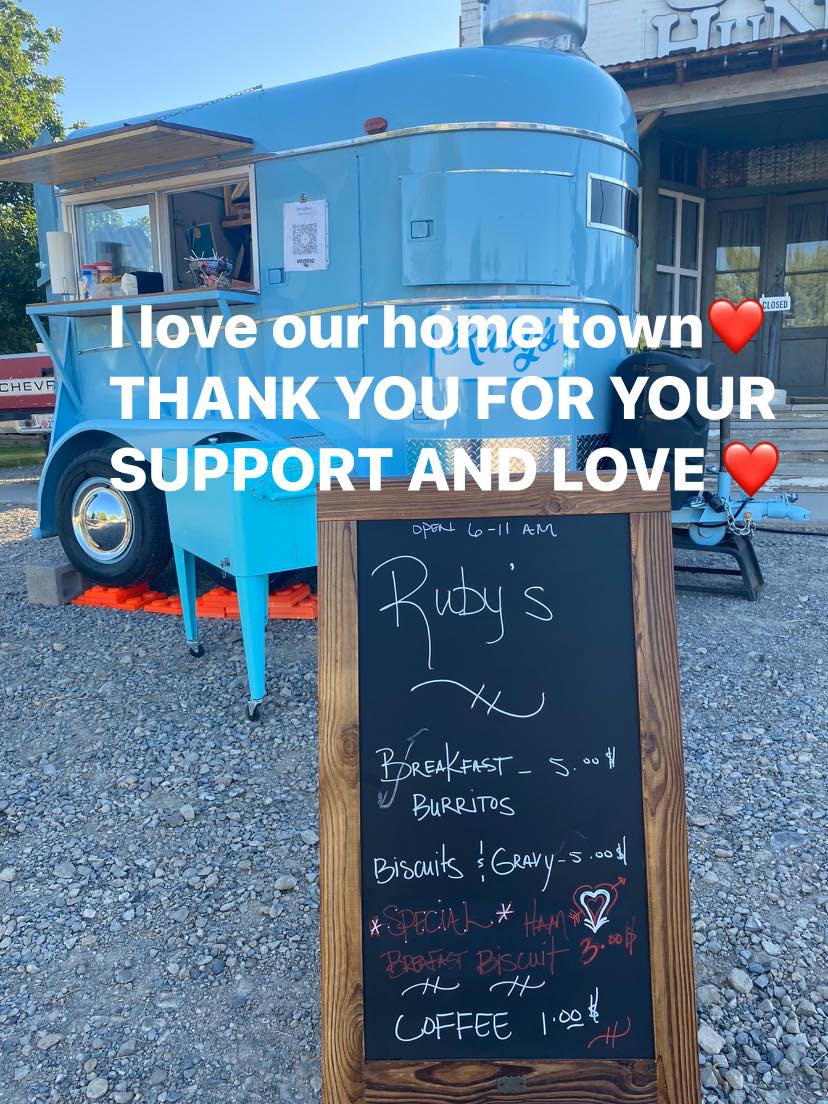 HUN
venmo
CLOSED
CHEVR
Ruby's
I love our home town❤️
THANK YOU FOR YOUR
SUPPORT AND LOVE❤️
OPEN 6-11 AM
Ruby's
BREAKFAST - 5.00$
BURRITOS
Biscuits & GRAVY-5.00$
*SPECIAL* HAM
BREAFAST BISCUIT 3.00$
COFFEE 1.00$